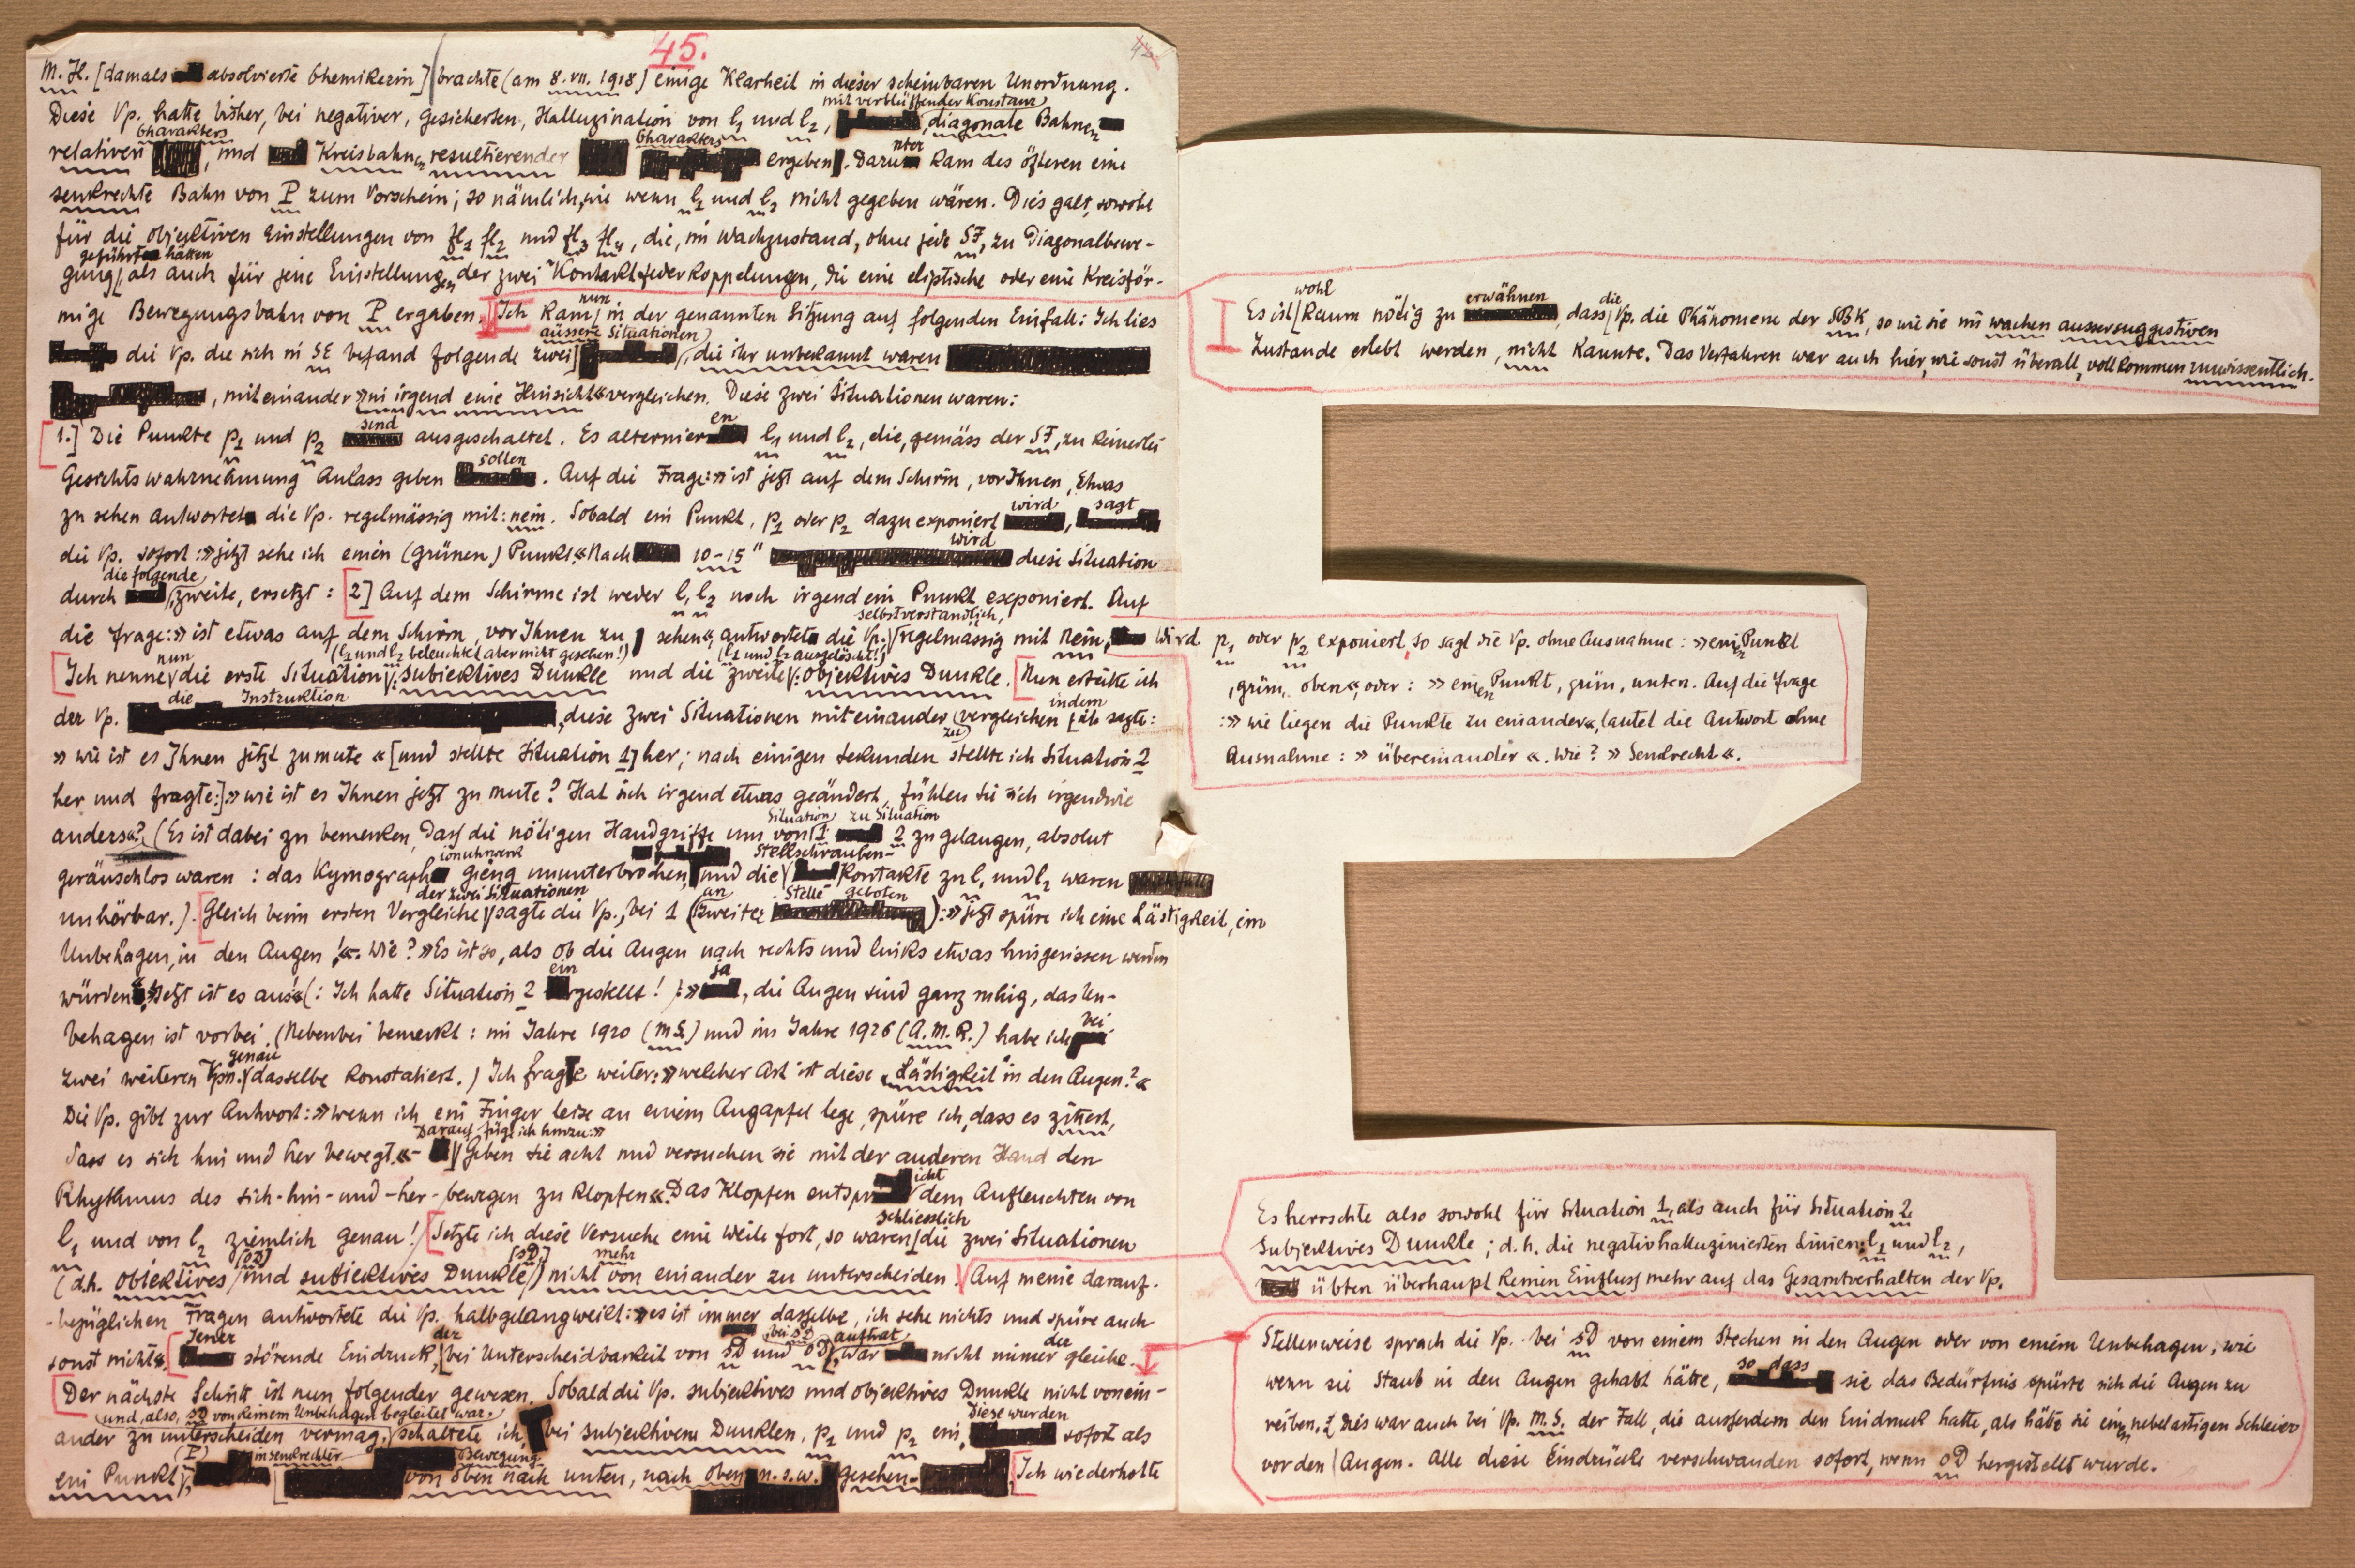 45.
M. H. [damals absolvierte Chemikerin] brachte (am 8. VII. 1918) einige Klarheit in dieser scheinbaren Unordnung.
mit verblüffender Konstanz
Diese Vp. hatte bisher, bei negativer, gesicherten, Halluzination von l1 und l2, diagonale Bahnen
Charakters Charakters
relativen , und Kreisbahnen resultierender ergeben. Darunter kam des öfteren eine
senkrechte Bahn von P zum Vorschein; so nämlich, wie wenn l1 und l2 nicht gegeben wären. Dies galt, sowohl
für die objektiven Einstellungen von fl1 fl2 und fl3 fl4, die, im Wachzustand, ohne jede SF, zu Diagonalbewe-
geführt hätten
gung, als auch für jene Einstellungen der zwei Kontaktfederkoppelungen, die eine eliptische oder eine Kreisför-
mige Bewegungsbahn von P ergaben. Ich kam nun in der genannten Sitzung auf folgenden Einfall: Ich lies
äussere Situationen
die Vp. die sich in SE befand folgende zwei , die ihr unbekannt waren
, miteinander »in irgend eine Hinsicht« vergleichen. Diese zwei Situationen waren:
1.] Die Punkte p1 und p2 sind ausgeschaltet. Es alternieren l1 und l2, die, gemäss der SF, zu keinerlei
Gesichtswahrnehmung Anlass geben sollen. Auf die Frage: »ist jetzt auf dem Schirm, vor Ihnen, Etwas
zu sehen antwortet die Vp. regelmässig mit: nein. Sobald ein Punkt, p1 oder p2 dazu exponiert wird, sagt
die Vp. sofort: »jetzt sehe ich einen (grünen) Punkt«. Nach 10-15" wird diese Situation
durch die folgende, zweite, ersetzt: 2] Auf dem Schirme ist weder l1 l2 noch irgend ein Punkt exponiert. Auf
selbstverständlich,
die Frage: »ist etwas auf dem Schirm, vor Ihnen zu sehen«, antwortet die Vp. regelmässig mit Nein,
(l1 und l2 beleuchtet aber nicht gesehen!) (l1 und l2 ausgelöscht!)
Ich nenne nun die erste Situation: subjektives Dunkle und die zweite: objektives Dunkle. Nun erteilte ich
der Vp. die Instruktion, diese zwei Situationen miteinander zu vergleichen indem ich sagte:
»wie ist es Ihnen jetzt zumute« [und stellte Situation 1] her; nach einigen Sekunden stellte ich Situation 2
her und fragte:] »wie ist es Ihnen jetzt zu mute? Hat sich irgend etwas geändert, fühlen Sie sich irgendwie
anders«? (Es ist dabei zu bemerken, dass die nötigen Handgriffe um von Situation 1 zu Situation 2 zu gelangen, absolut
geräuschlos waren: das Kymographionuhrwerk gieng ununterbrochen, und die Stellschrauben-Kontakte zu l1 und l2 waren
unhörbar.). Gleich beim ersten Vergleiche der zwei Situationen sagte die Vp., bei 1 (an zweiter Stelle geboten): »jetzt spüre ich eine Lästigkeit, ein
Unbehagen, in den Augen!«. Wie? »Es ist so, als ob die Augen nach rechts und links etwas hingerissen werden
würden«. »Jetzt ist es aus!« (: Ich hatte Situation 2 eingestellt!) »ja, die Augen sind ganz ruhig, das Un-
behagen ist vorbei. (Nebenbei bemerkt: im Jahre 1920 (M.S.) und im Jahre 1926 (A.M.R.) habe ich bei
zwei weiteren Vpn. genau dasselbe konstatiert.) Ich fragte weiter: »welcher Art ist diese „Lästigkeit" in den Augen?«
Die Vp. gibt zur Antwort: »wenn ich ein Finger leise an einem Augapfel lege, spüre ich, dass es zittert,
Darauf füge ich hinzu: »
dass es sich hin und her bewegt.«- Geben Sie acht und versuchen sie mit der anderen Hand den
Rhythmus des sich-hin-und-her-bewegen zu klopfen«. Das Klopfen entspricht dem Aufleuchten von
l1 und von l2 ziemlich genau! Setzte ich diese Versuche eine Weile fort, so waren schliesslich die zwei Situationen
(d.h. objektives [OD] und subjektives Dunkle [SD]) nicht mehr von einander zu unterscheiden. Auf meine darauf-
bezüglichen Fragen antwortete die Vp. halbgelangweilt: »es ist immer dasselbe, ich sehe nichts und spüre auch
sonst nichts«. Jener störende Eindruck, der bei Unterscheidbarkeit von SD und OD, bei SD auftrat, war nicht immer der gleiche.
Der nächste Schritt ist nun folgender gewesen. Sobald die Vp. subjektives und objektives Dunkle nicht vonein-
(und, also, SD von keinem Unbehagen begleitet war,
ander zu unterscheiden vermag, schaltete ich bei subjektivem Dunklen, p1 und p2 ein, Diese wurden sofort als
ein Punkt (P), in senkrechter Bewegung von oben nach unten, nach oben u.s.w. gesehen. Ich wiederholte
Es ist wohl kaum nötig zu erwähnen, dass die Vp. die Phänomene der SBK, so wie sie im wachen aussersuggestiven
Zustande erlebt werden, nicht kannte. Das Verfahren war auch hier, wie sonst überall, vollkommen unwissentlich.
wird p1 oder p2 exponiert, so sagt die Vp. ohne Ausnahme: »einen Punkt
, grün, oben«, oder: »einen Punkt, grün, unten. Auf die Frage
: »wie liegen die Punkte zu einander«, lautet die Antwort ohne
Ausnahme: »übereinander«. Wie? »Senkrecht«.
Es herrschte also sowohl für Situation 1, als auch für Situation 2
Subjektives Dunkle; d.h. die negativhalluzinierten Linien l1 und l2,
übten überhaupt keinen Einfluss mehr auf das Gesamtverhalten der Vp.
Stellenweise sprach die Vp. bei SD von einem Stechen in den Augen oder von einem Unbehagen, wie
wenn sie Staub in den Augen gehabt hätte, so dass sie das Bedürfnis spürte sich die Augen zu
reiben. Dies war auch bei Vp. M.S. der Fall, die ausserdem den Eindruck hatte, als hätte sie einen nebelartigen Schleier
vor den Augen. Alle diese Eindrücke verschwanden sofort, wenn OD hergestellt wurde.